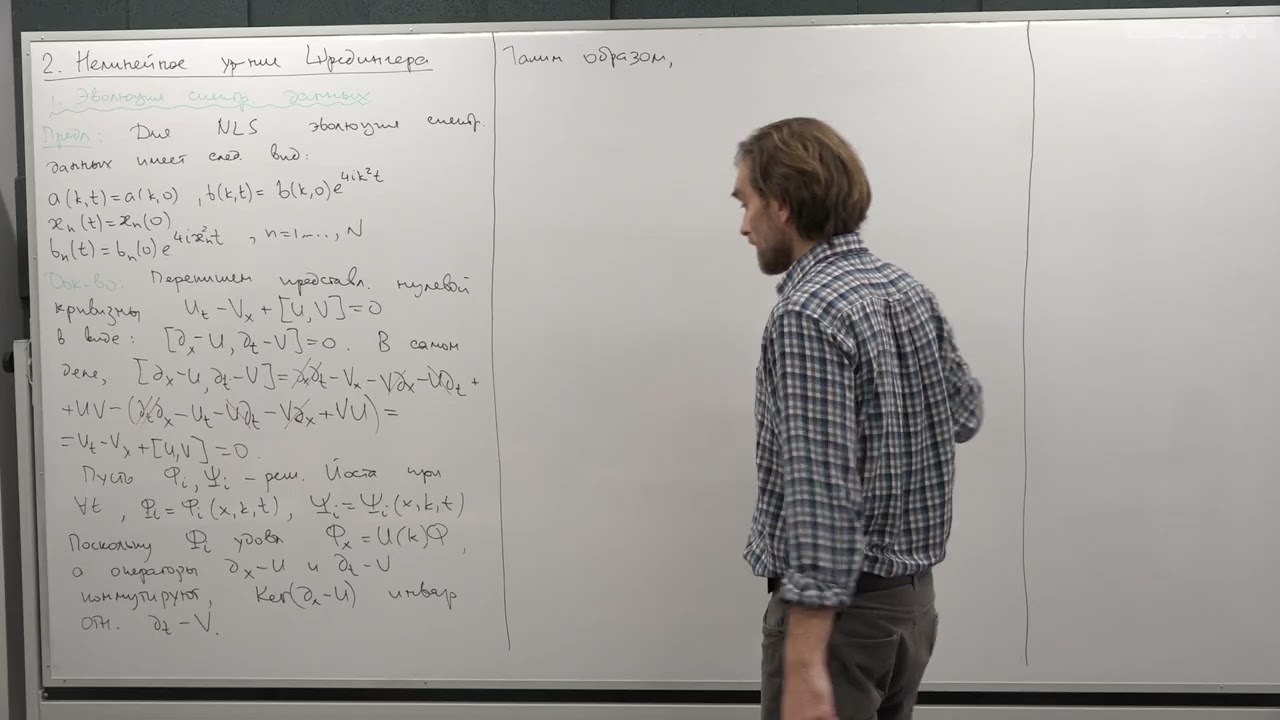 2. Нелинейное ур-ние Шрёдингера
1. Эволюция спектр. данных
Предл: Для NLS эволюция спектр.
данных имеет след. вид:
a(k,t)=a(k,0), b(k,t)=b(k,0)e^{4ik²t}
ϰₙ(t)=ϰₙ(0)
bₙ(t)=bₙ(0)e^{4iϰₙ²t}, n=1,...,N
Док-во: Перепишем представл. нулевой
кривизны Uₜ-Vₓ+[U,V]=0
в виде: [∂ₓ-U,∂ₜ-V]=0. В самом
деле, [∂ₓ-U,∂ₜ-V]=∂ₓ∂ₜ-Vₓ-V∂ₓ-U∂ₜ+
+UV-(∂ₜ∂ₓ-Uₜ-U∂ₜ-V∂ₓ+VU)=
=Uₜ-Vₓ+[U,V]=0.
Пусть Φᵢ,Ψᵢ - реш. Йоста при
∀t, Φᵢ=Φᵢ(x,k,t), Ψᵢ=Ψᵢ(x,k,t)
Поскольку Φᵢ удовл Φₓ=U(k)Φ,
а операторы ∂ₓ-U и ∂ₜ-V
коммутируют, Ker(∂ₓ-U) инвар
отн. ∂ₜ-V.
Таким образом,